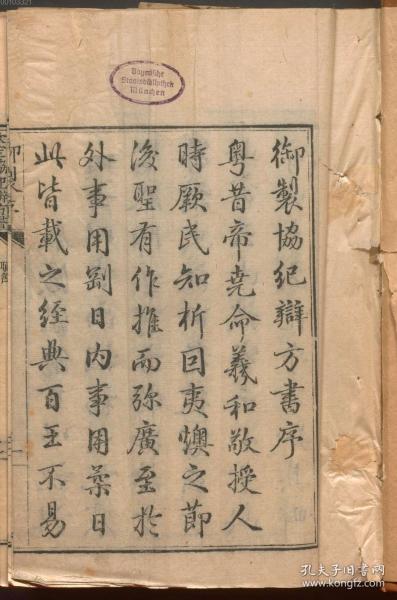 御製協紀辯方書序
粤昔帝堯命羲和敬授人
時厥民知析因夷燠之節
後聖有作推而弥廣至於
外事用剛日内事用柔日
此皆載之經典百王不易
Bayerische
Staatsbibliothek
München
孔夫子旧书网
www.kongfz.com